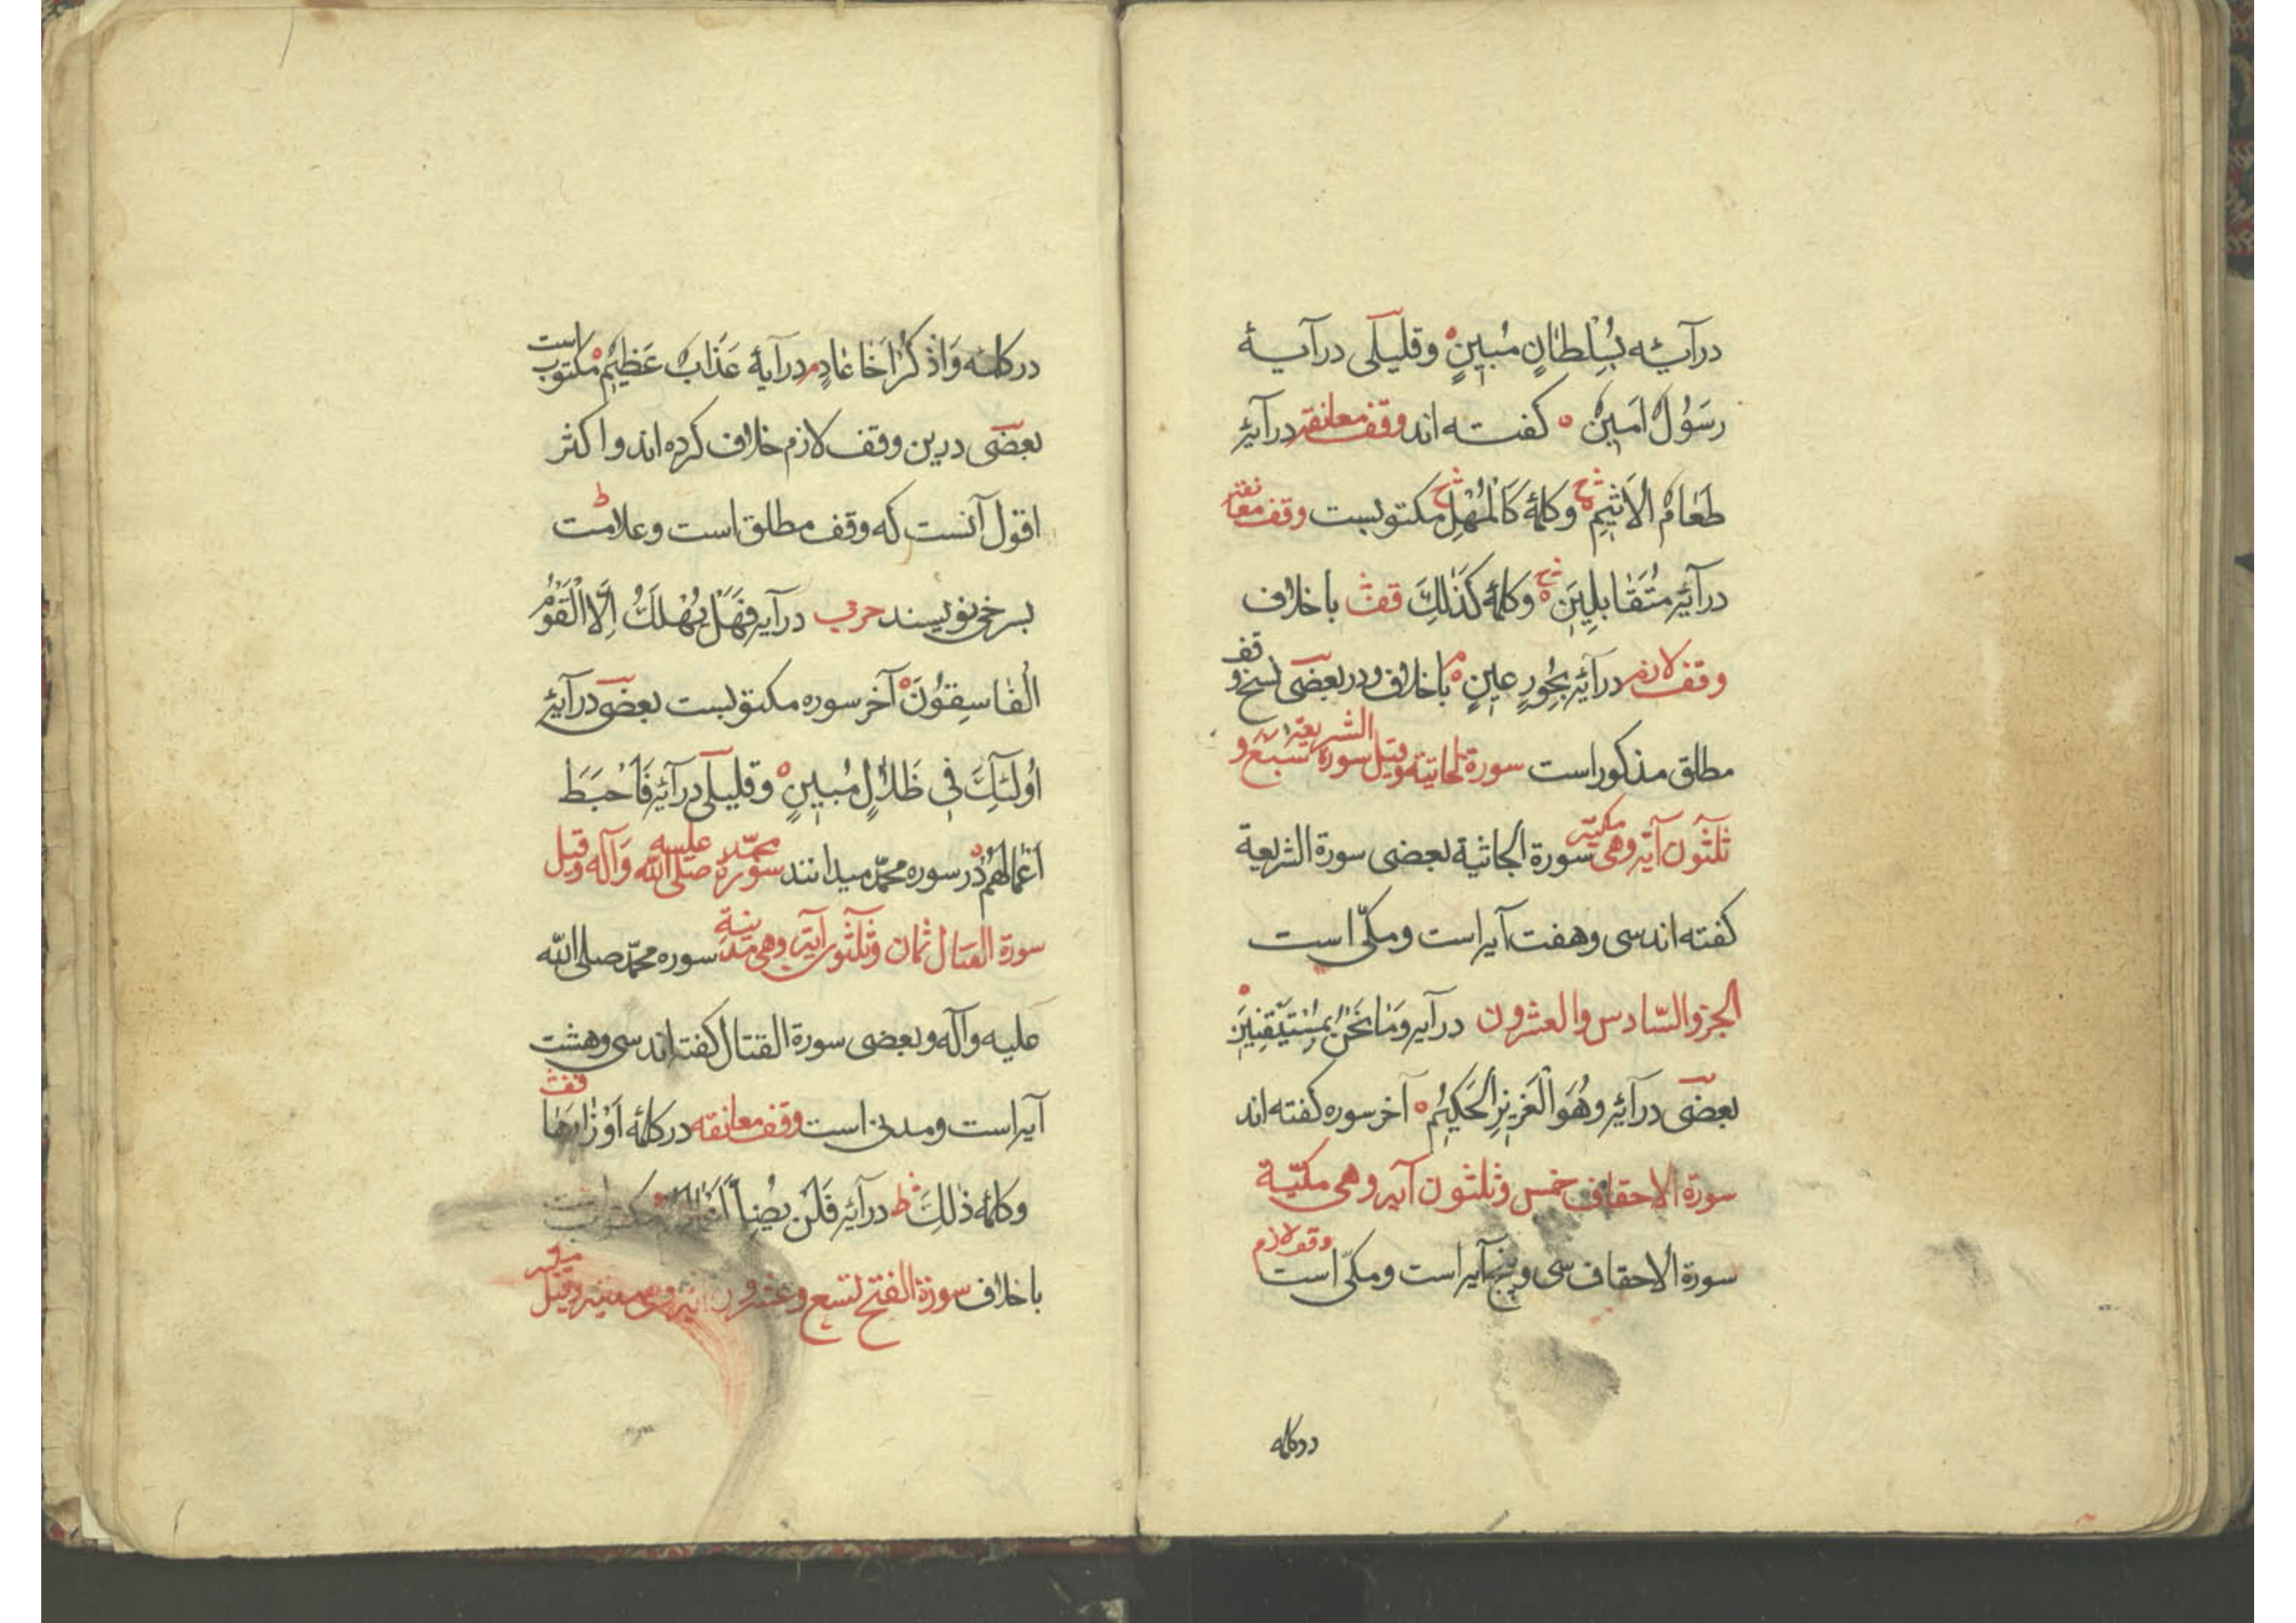 درآیـه بِسُلْطَانٍ مُبِینٍ ه وقلیلی درآیـهٔ
رَسُولٌ اَمِینٌ ه کفتـه اند وقف معانقه درآیهٔ
طَعَامُ الْاَثِیمِ ه ج وکلمهٔ کَالْمُهْلِ ج مکتوبست وقف معانقه
درآیهٔ مُتَقَابِلِینَ ه ج وکلمهٔ کَذَلِكَ قف باخلاف
وقف لازم درآیهٔ بِحُورٍ عِینٍ ه م باخلاف ودر بعضی نسخ وقف
مطلق مذکور است سورة الجاثیة وقیل سورة الشریعة سبع و
ثلثون آیة وهی مکیة سورة الجاثیة بعضی سورة الشریعة
کفته اند سی وهفت آیه است ومکّی است
الجزو السّادس والعشرون درآیه وَمَا نَحْنُ بِمُسْتَیْقِنِینَ ه
بعضی درآیهٔ وهُوَ الْعَزِیزُ الْحَکِیمُ ه آخر سوره کفته اند
سورة الاحقاف خمس وثلثون آیه وهی مکیّة
سورة الاحقاف سی وپنج آیه است ومکّی است وقف لازم
در کلمه
در کلمـه وَاذْکُرْ اَخَا عَادٍ م درآیهٔ عَذَابٌ عَظِیمٌ ه مکتوب است
بعضی درین وقف لازم خلاف کرده اند واکثر
اقول آنست که وقف مطلق است وعلامت ط
بسرخی نویسند حزب درآیه فَهَلْ یُهْلَكُ اِلَّا الْقَوْمُ
الْفَاسِقُونَ ه آخر سوره مکتوبست بعضی درآیهٔ
اُولٰئِكَ فِی ضَلَالٍ مُبِینٍ ه وقلیلی درآیهٔ فَاَحْبَطَ
اَعْمَالَهُمْ ه در سوره محمّد میدانند سورة محمّد صلی الله علیه وآله وقیل
سورة القتال ثمان وثلثون آیة وهی مدنیة سوره محمّد صلی الله
علیه وآله وبعضی سورة القتال کفته اند سی وهشت
آیه است ومدنی است وقف معانقه در کلمهٔ اَوْزَارَهَا قف
وکلمهٔ ذٰلِكَ ط درآیهٔ فَلَنْ یُضِلَّ اَعْمَالَهُمْ ه مکتوبست
باخلاف سورة الفتح تسع وعشرون آیة وهی مدنیة وقیل